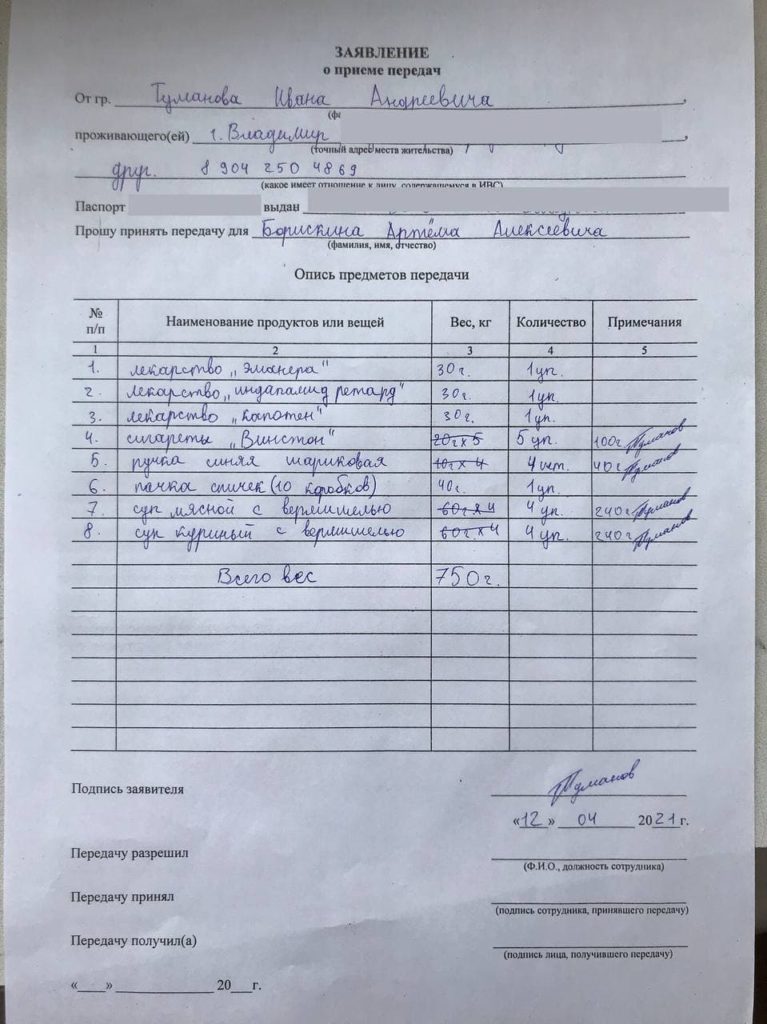 ЗАЯВЛЕНИЕ
о приеме передач
От гр. Туманова Ивана Андреевича
проживающего(ей) г. Владимир
(точный адрес места жительства)
друг. 8 904 250 4869
(какое имеет отношение к лицу, содержащемуся в ИВС)
Паспорт выдан
Прошу принять передачу для Борискина Артёма Алексеевича
(фамилия, имя, отчество)
Опись предметов передачи
№ п/п Наименование продуктов или вещей Вес, кг Количество Примечания
1 2 3 4 5
1. лекарство „Эманера" 30г. 1уп.
2. лекарство „индапамид ретард" 30г. 1уп.
3. лекарство „капотен" 30г. 1уп.
4. сигареты „Винстон" 20г x 5 5 уп. 100г Туманов
5. ручка синяя шариковая 10г x 4 4 шт. 40г Туманов
6. пачка спичек (10 коробков) 40г. 1уп.
7. суп мясной с вермишелью 60г x 4 4 уп. 240г Туманов
8. суп куриный с вермишелью 60г x 4 4 уп. 240г Туманов
Всего вес 750г.
Подпись заявителя Туманов
«12» 04 2021г.
Передачу разрешил
(Ф.И.О., должность сотрудника)
Передачу принял
(подпись сотрудника, принявшего передачу)
Передачу получил(а)
(подпись лица, получившего передачу)
«___» ____________ 20___г.